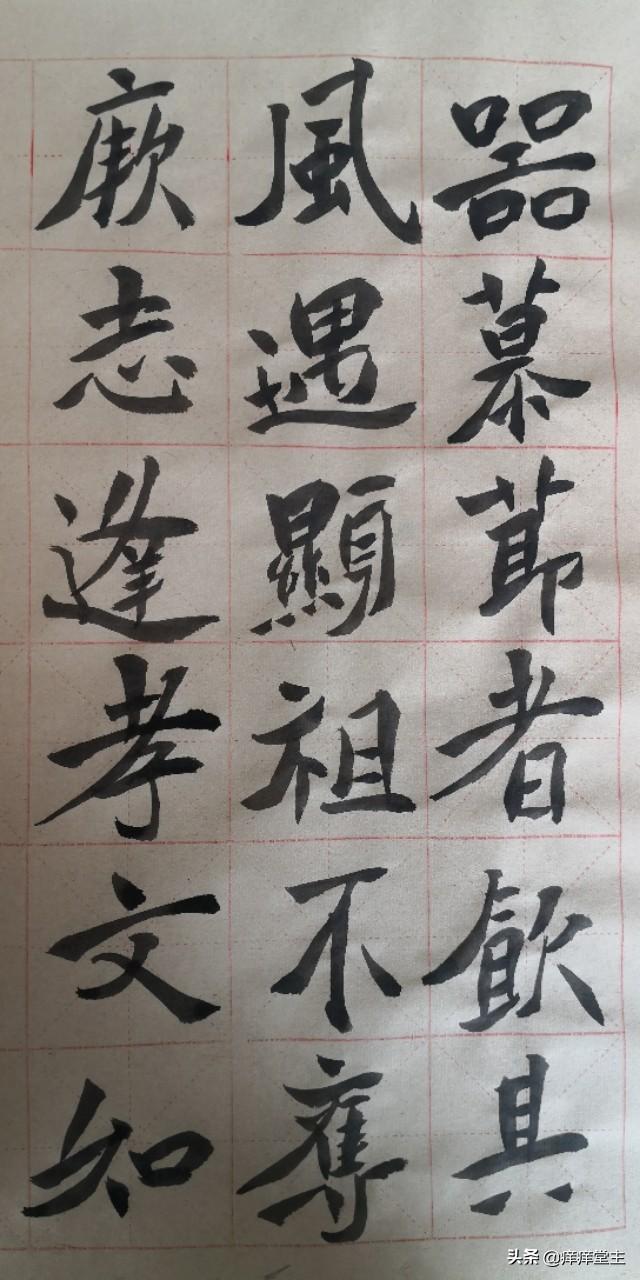 器慕節者飲具
風遇顯祖不奪
厥志逢孝文知
头条 @痒痒堂主